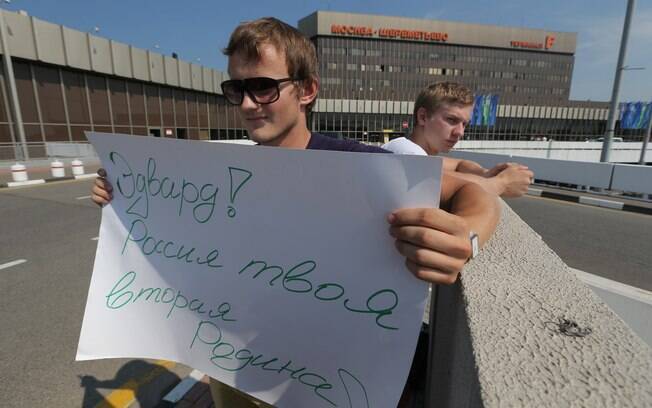 МОСКВА-ШЕРЕМЕТЬЕВО
ТЕРМИНАЛ F
Эдвард!
Россия твоя
вторая
Родина!